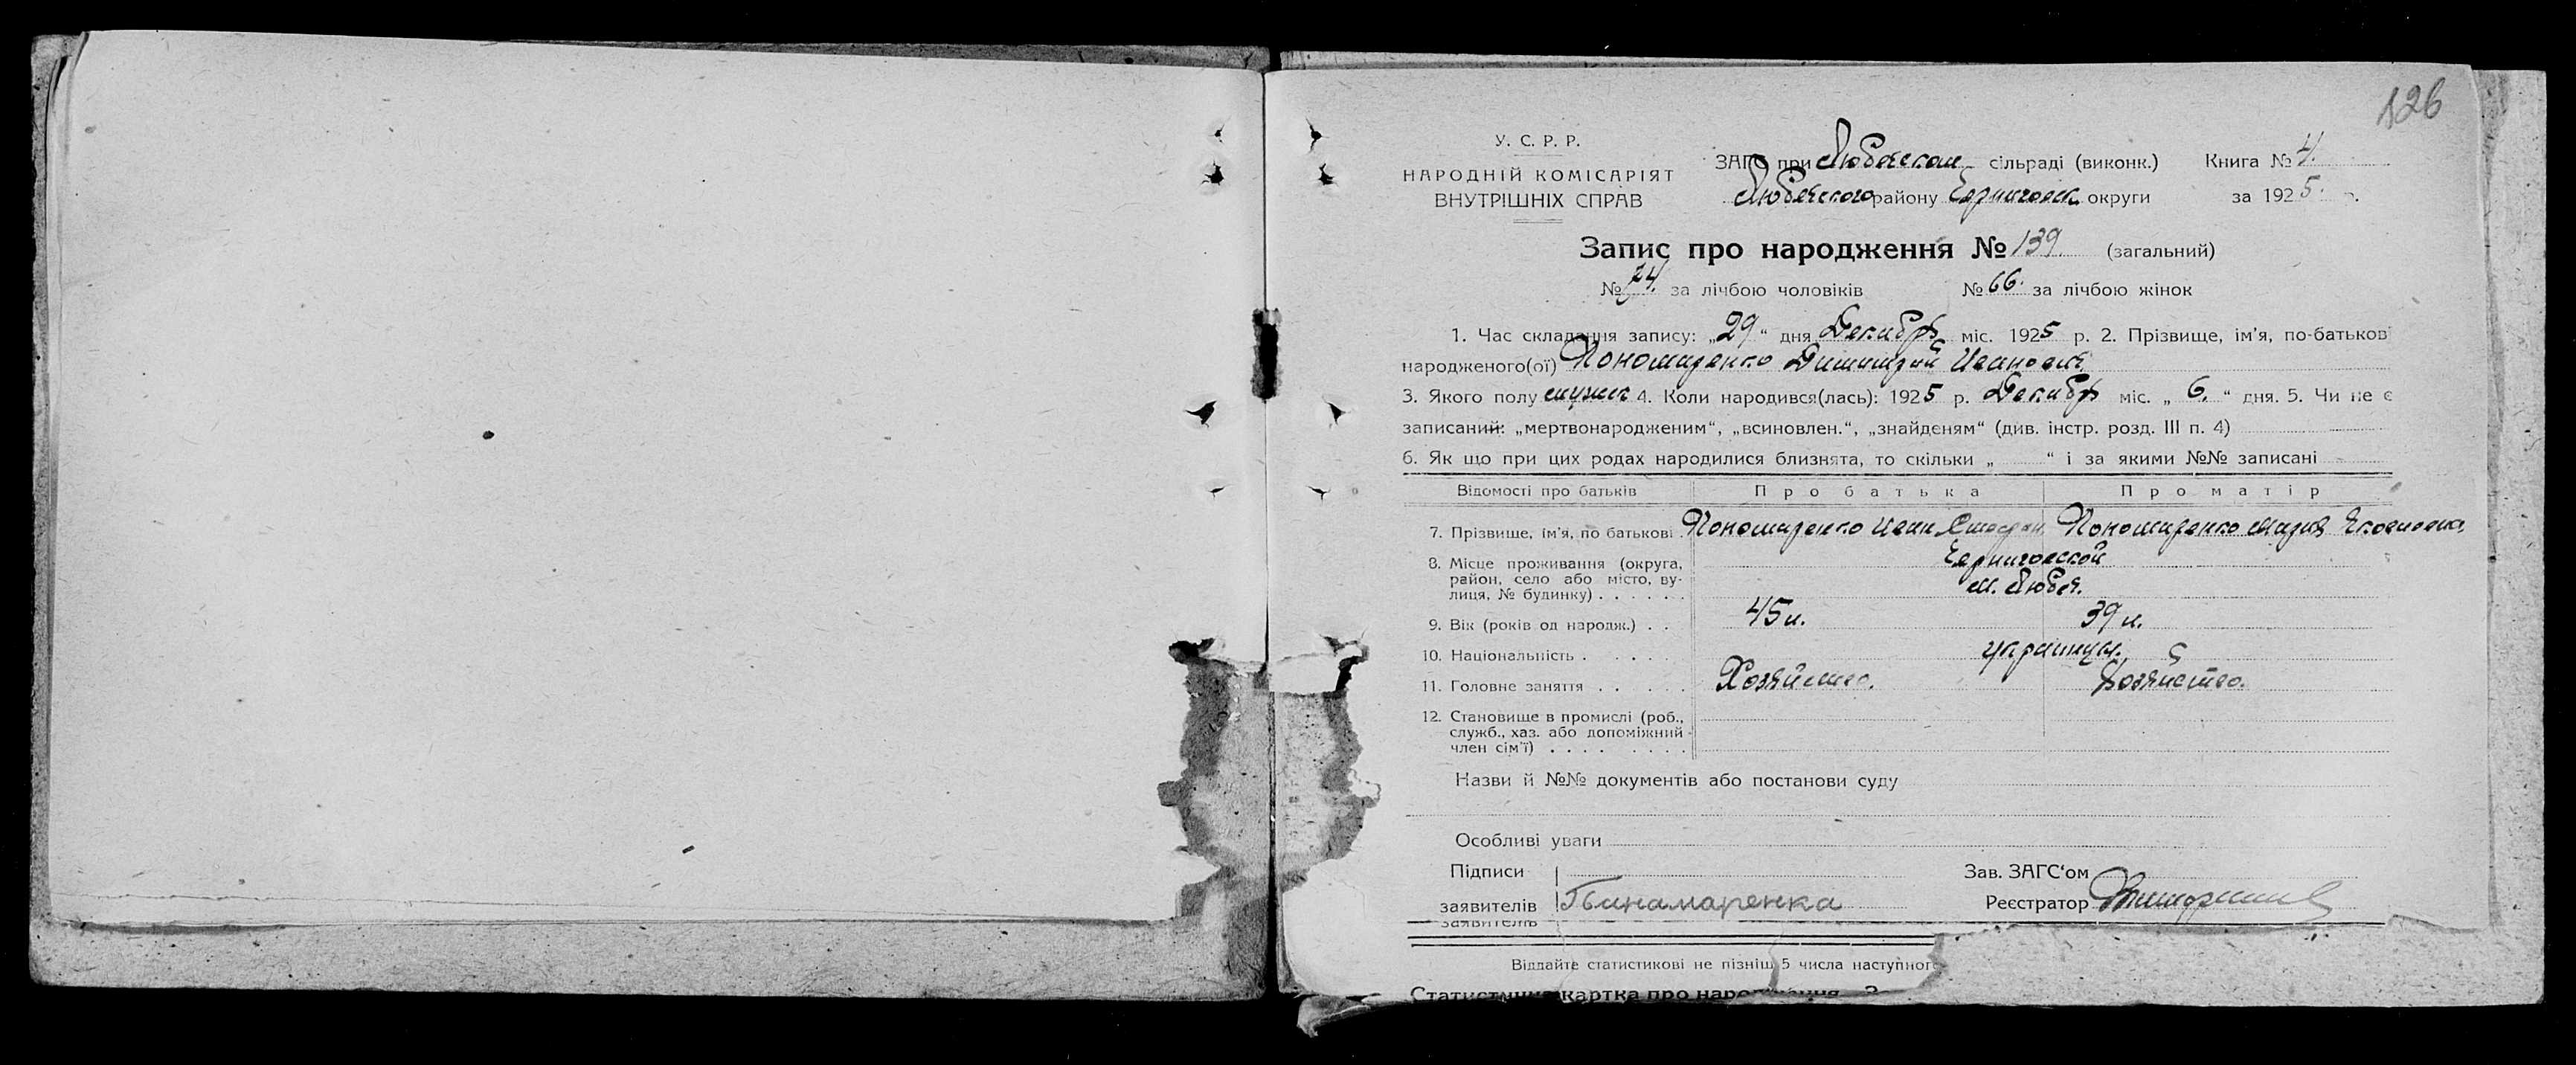 126
У. С. Р. Р.
НАРОДНІЙ КОМІСАРІЯТ
ВНУТРІШНІХ СПРАВ
ЗАГС при Любечском сільраді (виконк.) Книга № 4.
Любечского району Черниговск. округи за 1925 р.
Запис про народження № 139 (загальний)
№ 74. за лічбою чоловіків № 66. за лічбою жінок
1. Час складання запису: „29“ дня Декабр міс. 1925 р. 2. Прізвище, ім’я, по-батькові
народженого(ої) Пономаренко Димитрий Иванович
3. Якого полу мужск 4. Коли народився(лась): 1925 р. Декабр міс. „6.“ дня. 5. Чи не є
записаний: „мертвонародженим“, „всиновлен.“, „знайденям“ (див. інстр. розд. III п. 4)
6. Як що при цих родах народилися близнята, то скільки „ “ і за якими №№ записані
Відомості про батьків Про батька Про матір
7. Прізвище, ім’я, по батькові. Пономаренко Иван Стефан Пономаренко Мария Яковновна
8. Місце проживання (округа, Черниговской
район, село або місто, ву- м. Любеч.
лиця, № будинку) . . . . . .
9. Вік (років од народж.) . . 45 л. 39 л.
10. Національність . . . . . украинцы.
11. Головне заняття . . . . . Хозяйство. Хозяйство.
12. Становище в промислі (роб.,
служб., хаз. або допоміжний
член сім’ї) . . . . . . . .
Назви й №№ документів або постанови суду
Особливі уваги
Підписи Зав. ЗАГС‘ом
заявителів Реєстратор
заявителів
Віддайте статистикові не пізніш 5 числа наступног
Статистична картка про народження